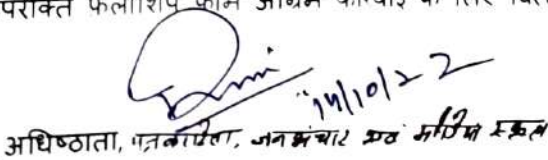 परोक्त फेलोशिप फॉर्म अग्रिम कार्रवाई के लिए
14/10/22
अधिष्ठाता, पत्रकारिता, जनसंचार एवं मीडिया स्कूल